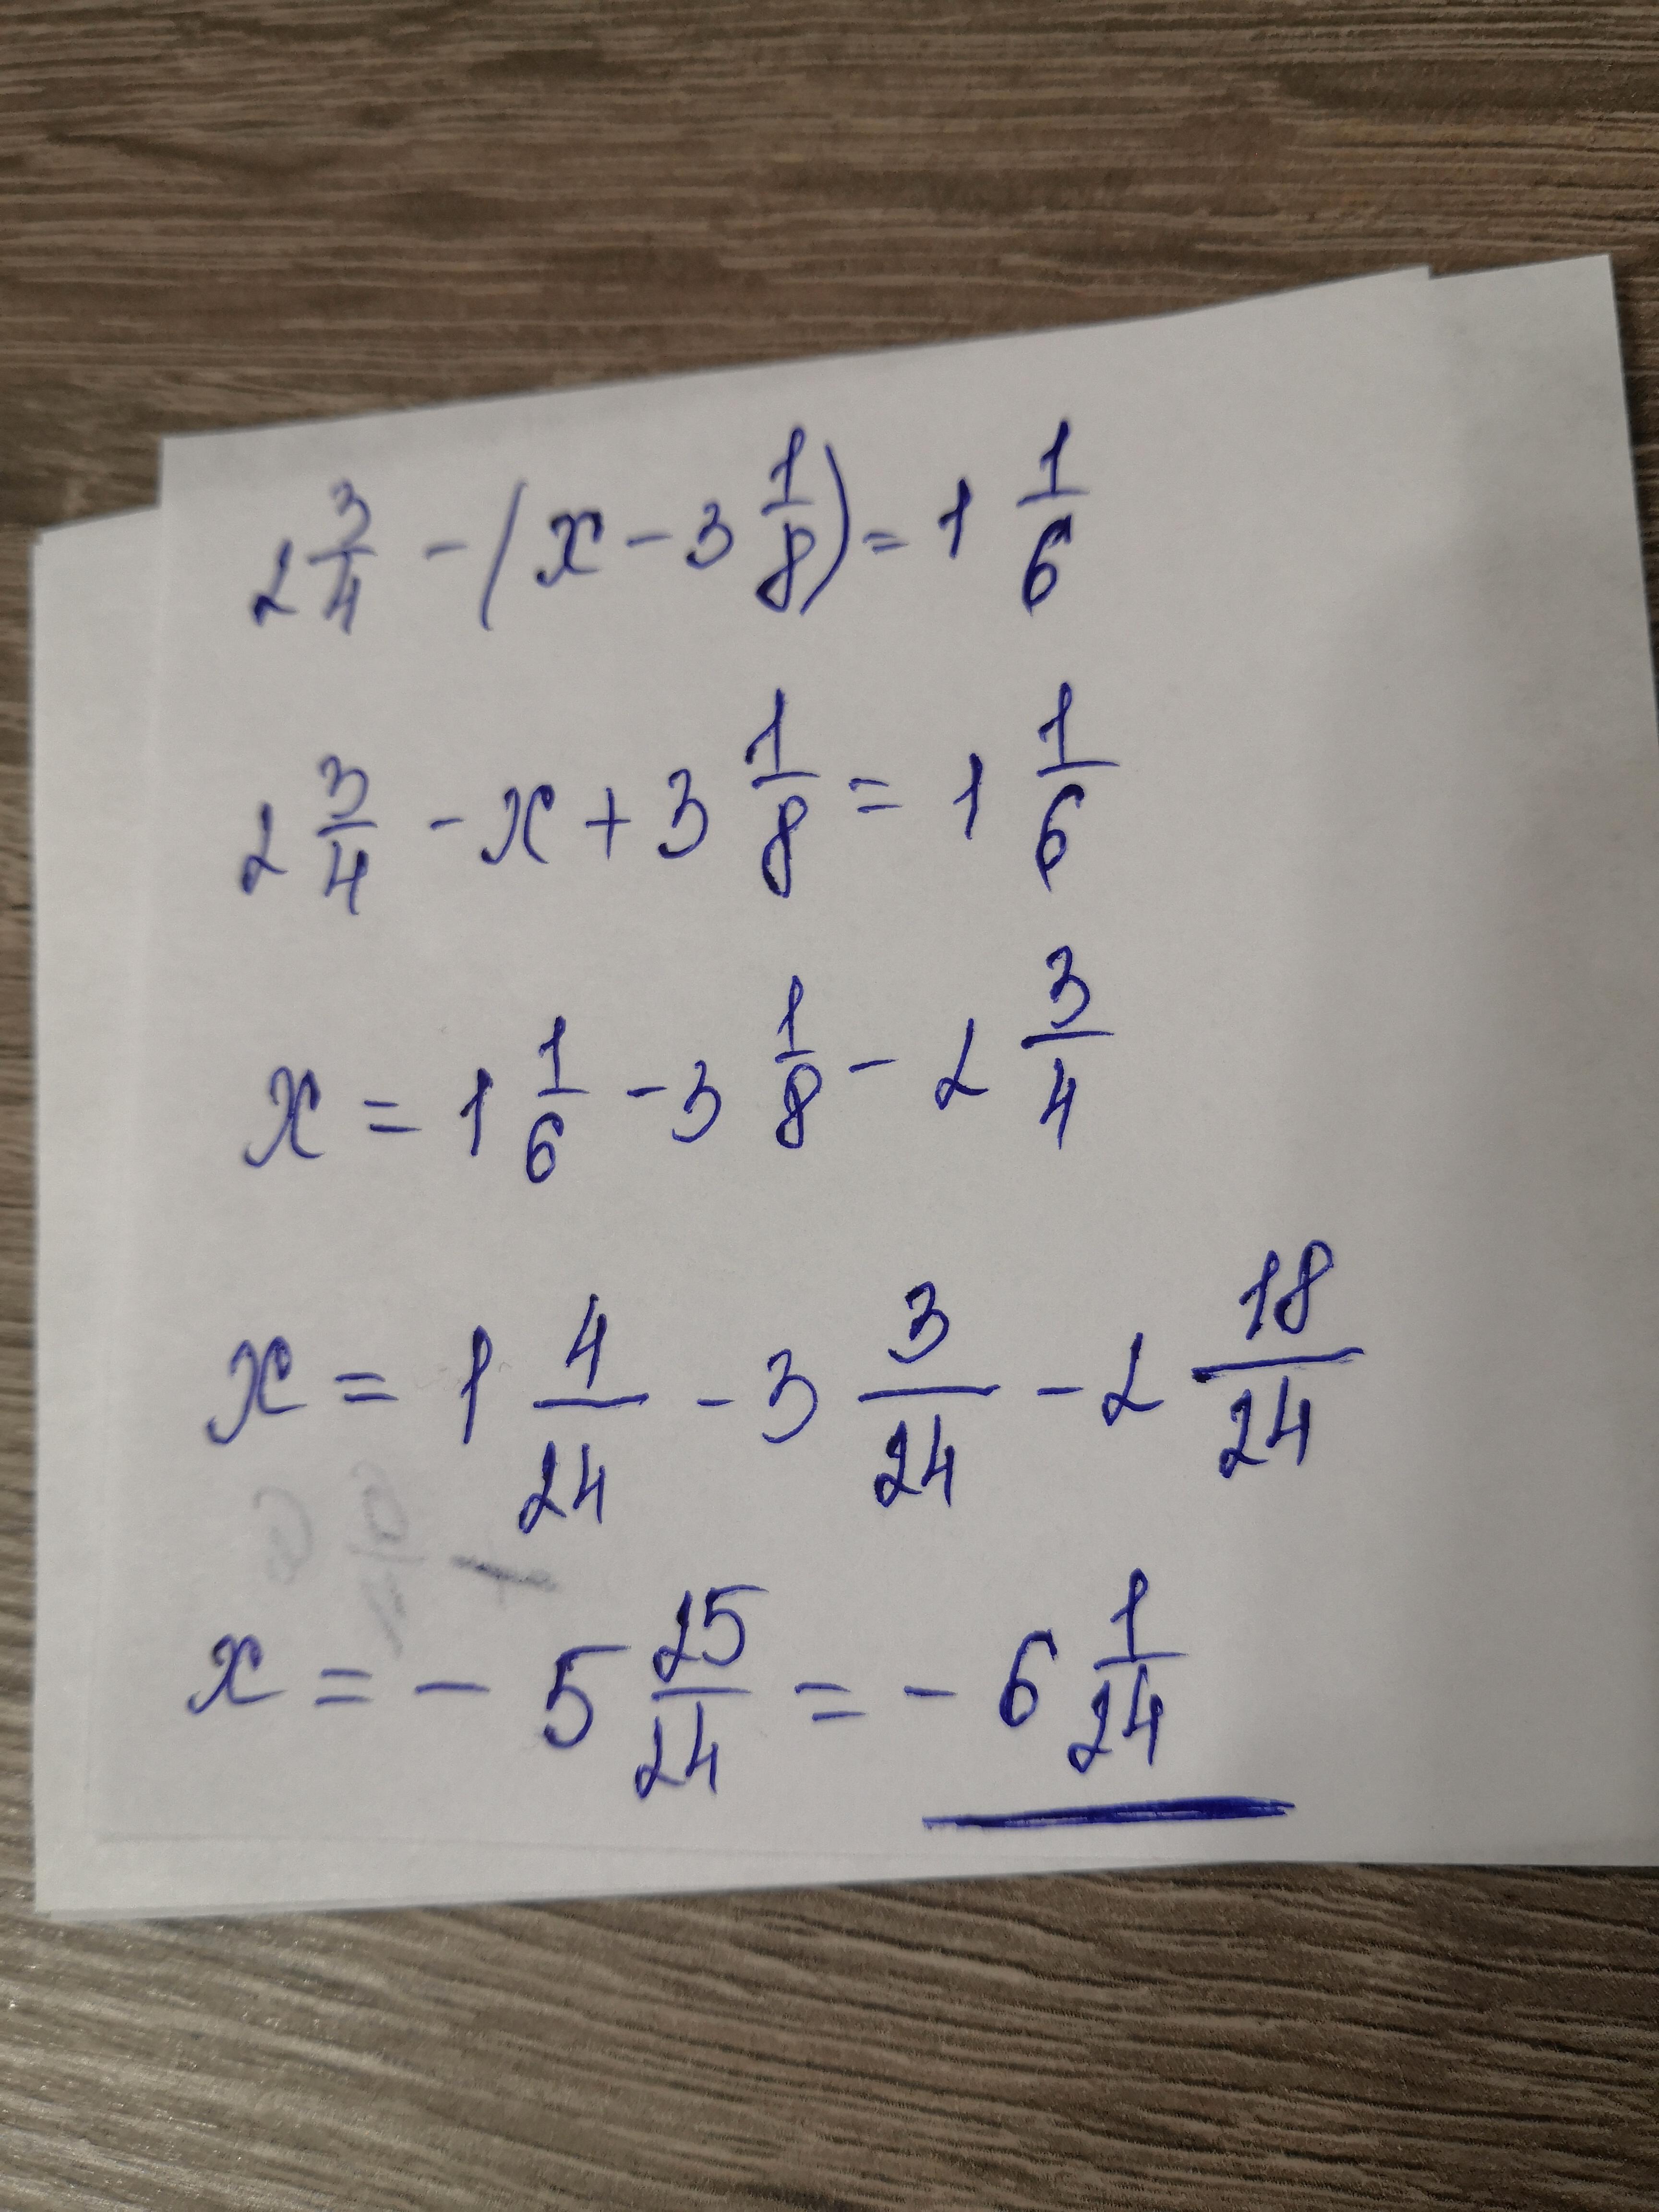 2 3/4 - (x - 3 1/8) = 1 1/6
2 3/4 - x + 3 1/8 = 1 1/6
x = 1 1/6 - 3 1/8 - 2 3/4
x = 1 4/24 - 3 3/24 - 2 18/24
x = - 5 25/24 = - 6 1/24